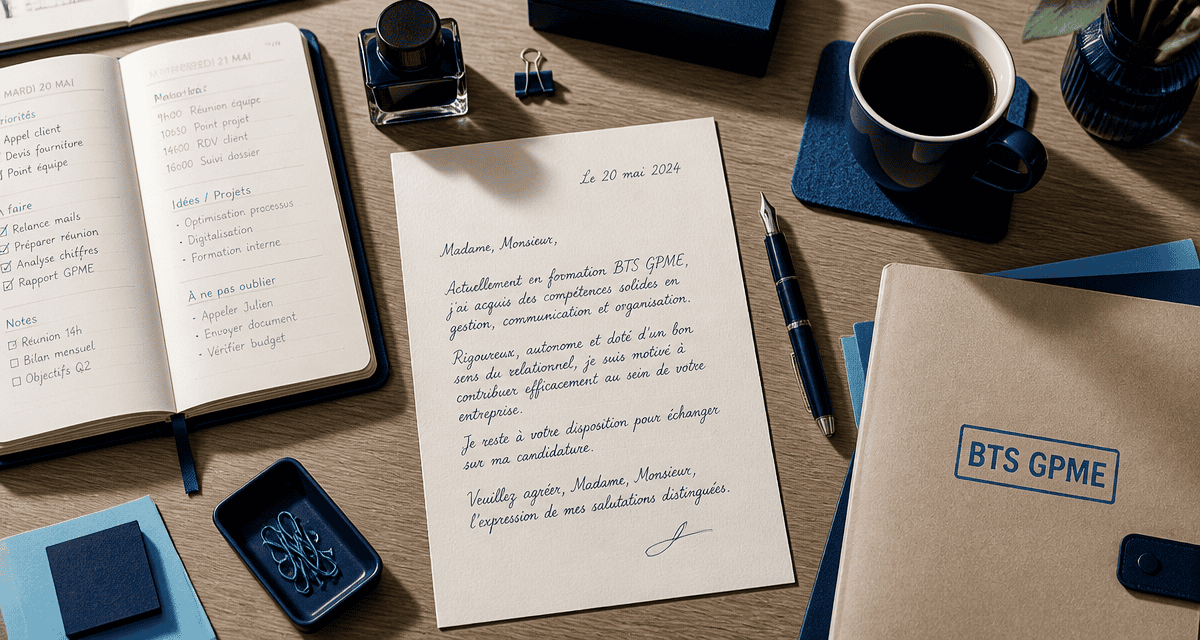 MARDI 20 MAI
riorités
Appel client
Devis fourniture
Point équipe
faire
☑ Relance mails
☑ Préparer réunion
☑ Analyse chiffres
☑ Rapport GPME
Notes
☑ Réunion 14h
☐ Bilan mensuel
☐ Objectifs Q2
21 MAI
9h00 Réunion équipe
Point projet
14h00 RDV client
16h00 Suivi dossier
Idées / Projets
• Optimisation processus
• Digitalisation
• Formation interne
À ne pas oublier
• Appeler Julien
• Envoyer document
• Vérifier budget
Le 20 mai 2024
Madame, Monsieur,
Actuellement en formation BTS GPME,
j'ai acquis des compétences solides en
gestion, communication et organisation.
Rigoureux, autonome et doté d'un bon
sens du relationnel, je suis motivé à
contribuer efficacement au sein de votre
entreprise.
Je reste à votre disposition pour échanger
sur ma candidature.
Veuillez agréer, Madame, Monsieur,
l'expression de mes salutations distinguées.
BTS GPME